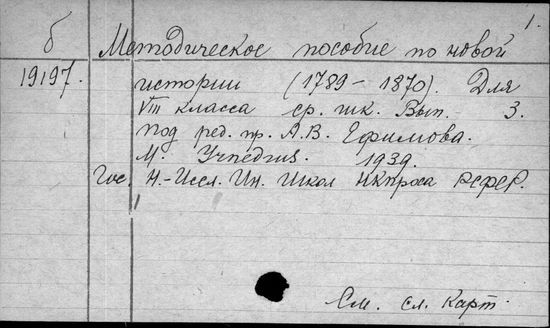 1.
б Методическое пособие по новой
19197. истории (1789-1870). Для
VIII класса ср. шк. Вып. 3.
под ред. пр. А.В. Ефимова.
М. Учпедгиз. 1939.
Гос. Н.-Иссл. Ин. Школ НКпроса РСФСР.
См. сл. карт.